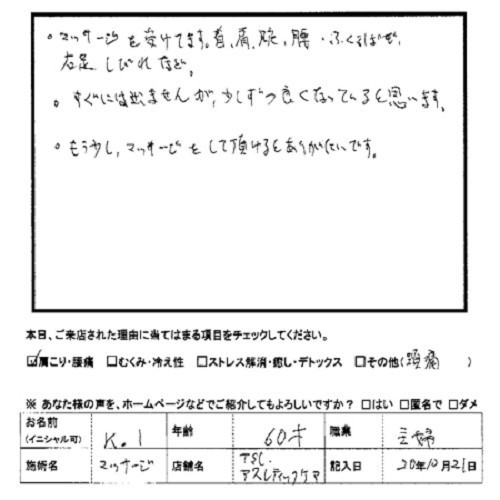 。マッサージを受けてます。首、肩、腕、腰、ふくらはぎ、
右足しびれなど。
。すぐには出ませんが、少しずつ良くなっていると思います。
。もう少し、マッサージをして頂けるとありがたいです。
本日、ご来店された理由に当てはまる項目をチェックしてください。
☑肩こり・腰痛 □むくみ・冷え性 □ストレス解消・癒し・デトックス □その他(頭痛 )
※ あなた様の声を、ホームページなどでご紹介してもよろしいですか? □はい □匿名で □ダメ
お名前 (イニシャル可) K.I 年齢 60才 職業 主婦
施術名 マッサージ 店舗名 TSC. アスレティックケア 記入日 20年10月21日